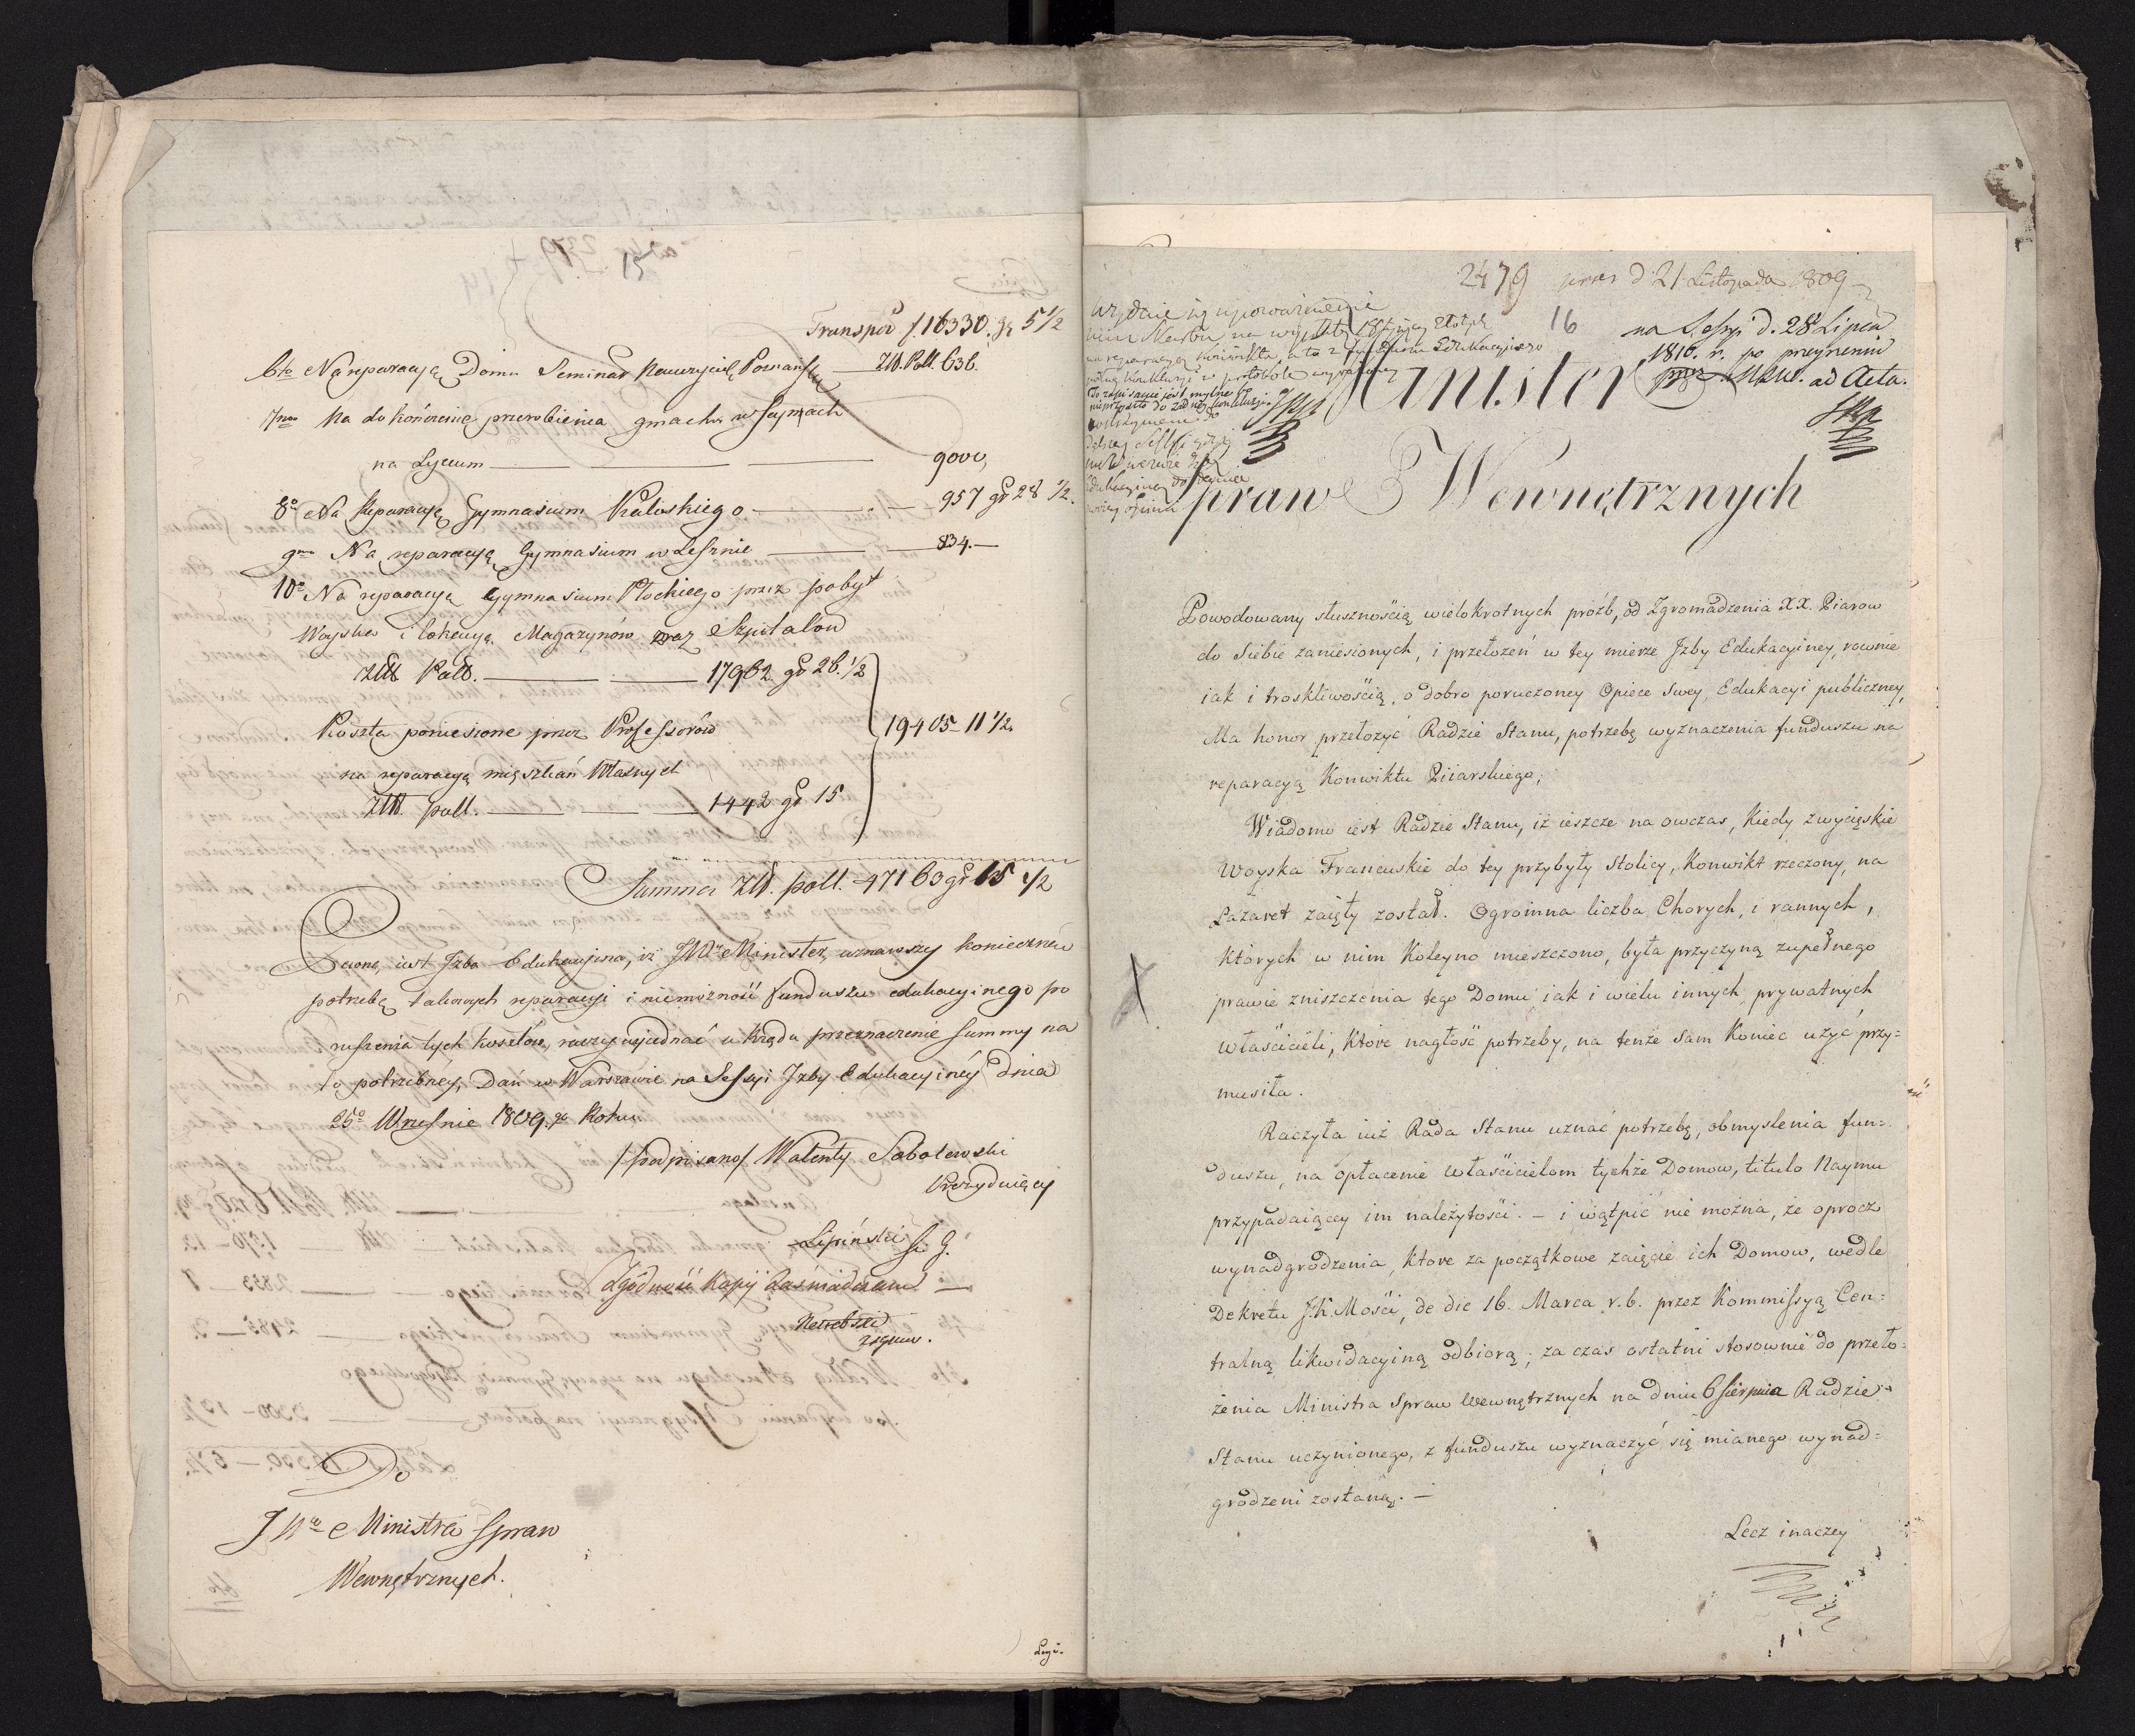 Transpor f. 16330. gr 5 1/2
6to Na reparacyą Domu Seminar Nauczycielą Poznańsk — Złł. Poll. 636.
7mo Na dokończenie przerobienia gmachu w Seynach
na Lyceum — — — 9000,
8o Na Reparacyę Gymnasium Kaliskiego — — 957 gr 28 1/2.
9no Na reparacyą Gymnasium w Lesznie — — 834.—
10o Na reparacyą Gymnasium Płockiego przez pobyt
Woyska i lokacyą Magazynów oraz Szpitalów
Złł Poll. — — 17962 gr 26. 1/2
19405 - 11 1/2
Koszta poniesione przez Professorów
na reparacyą mięszkań Własnych
Złł. poll. — — — 1442 gr 15
Summa Złł. poll. 47163 gr 15 1/2
Pewną iest Izba Edukacyina, iż JWny Minister uznawszy konieczną
potrzebę takowych reparacyi i niemożność funduszu edukacyinego po
ruszenia tych kosztów, raczy wyiednać u Rządu przeznaczenie summy na
to potrzebney, Dań w Warszawie na Sessyi Izby Edukacyiney dnia
25o Wrześnie 1809. go Roku
/podpisano/ Walenty Sobolewski
Prezyduiący
Lipiński S. G.
Zgodność Kopij Zaświadczam —
Do
JWo Ministra Spraw
Wewnętrznych.
2479 prces d 21 Listopada 1809
16
na Sessyi d. 28 Lipca
1810. r. po przyięciu
ad Acta.
Minister
Spraw Wewnętrznych
Powodowany słusznością wielokrotnych próźb, od Zgromadzenia XX. Piarow
do Siebie zaniesionych, i przełożeń w tey mierze Jzby Edukacyiney, rownie
iak i troskliwością, o dobro poruczoney Opiece swey, Edukacyi publiczney,
Ma honor przełożyć Radzie Stanu, potrzebę wyznaczenia funduszu na
reparacyą Konwiktu Piiarskiego;
Wiadomo iest Radzie Stanu, iż ieszcze na owczas, Kiedy zwycięskie
Woyska Francuskie do tey przybyły Stolicy, Konwikt rzeczony, na
Lazaret zaięty został. Ogromna liczba Chorych, i rannych,
Których w nim Koleyno mieszczono, była przyczyną zupełnego
prawie zniszczenia tego Domu iak i wielu innych prywatnych
właścicieli, Ktore nagłość potrzeby, na tenże sam Koniec użyć przy=
musiła.
Raczyła iuż Rada Stanu uznać potrzebę, obmyslenia fun=
duszu, na opłacenie właścicielom tychże Domow, titulo Naymu
przypadaiącey im należytości. — i wątpić nie można, że oprocz
wynadgrodzenia, Ktore za początkowe zaięcie ich Domow, wedle
Dekretu J. K. Mości, de die 16. Marca r. b. przez Kommissyą Cen=
tralną likwidacyiną odbiorą; za czas ostatni stosownie do przeło=
żenia Ministra Spraw Wewnętrznych na dniu 6 Sierpnia Radzie
Stanu uczynionego, z funduszu wyznaczyć się mianego wynad=
grodzeni zostaną. —
Lecz inaczey